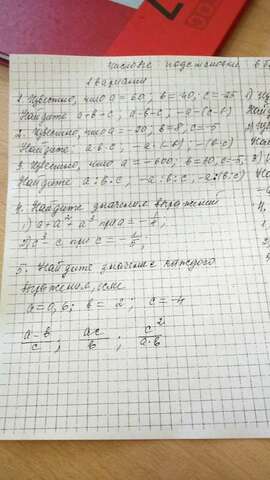 числовые подстановки
1 вариант
1. Известно, что a = 60; b = 40; c = -25
Найдите a+b+c; a-b-c; -a-(c-b)
2. Известно, что a = -20; b = 8; c = -5
Найдите: a·b·c; -a·(-b); -(b·c)
3. Известно, что a = -600; b = 60, c = -5,
Найдите a:b:c; -a:b:c; -a:(b:c)
4. Найдите значения выражений
1) a + a² - a³ при a = -
2) c³ - c при c = -
5. Найдите значение каждого
выражения, если
a = 0,6; b = 2; c = -4
a-b/c ; ac/b ; c²/a·b